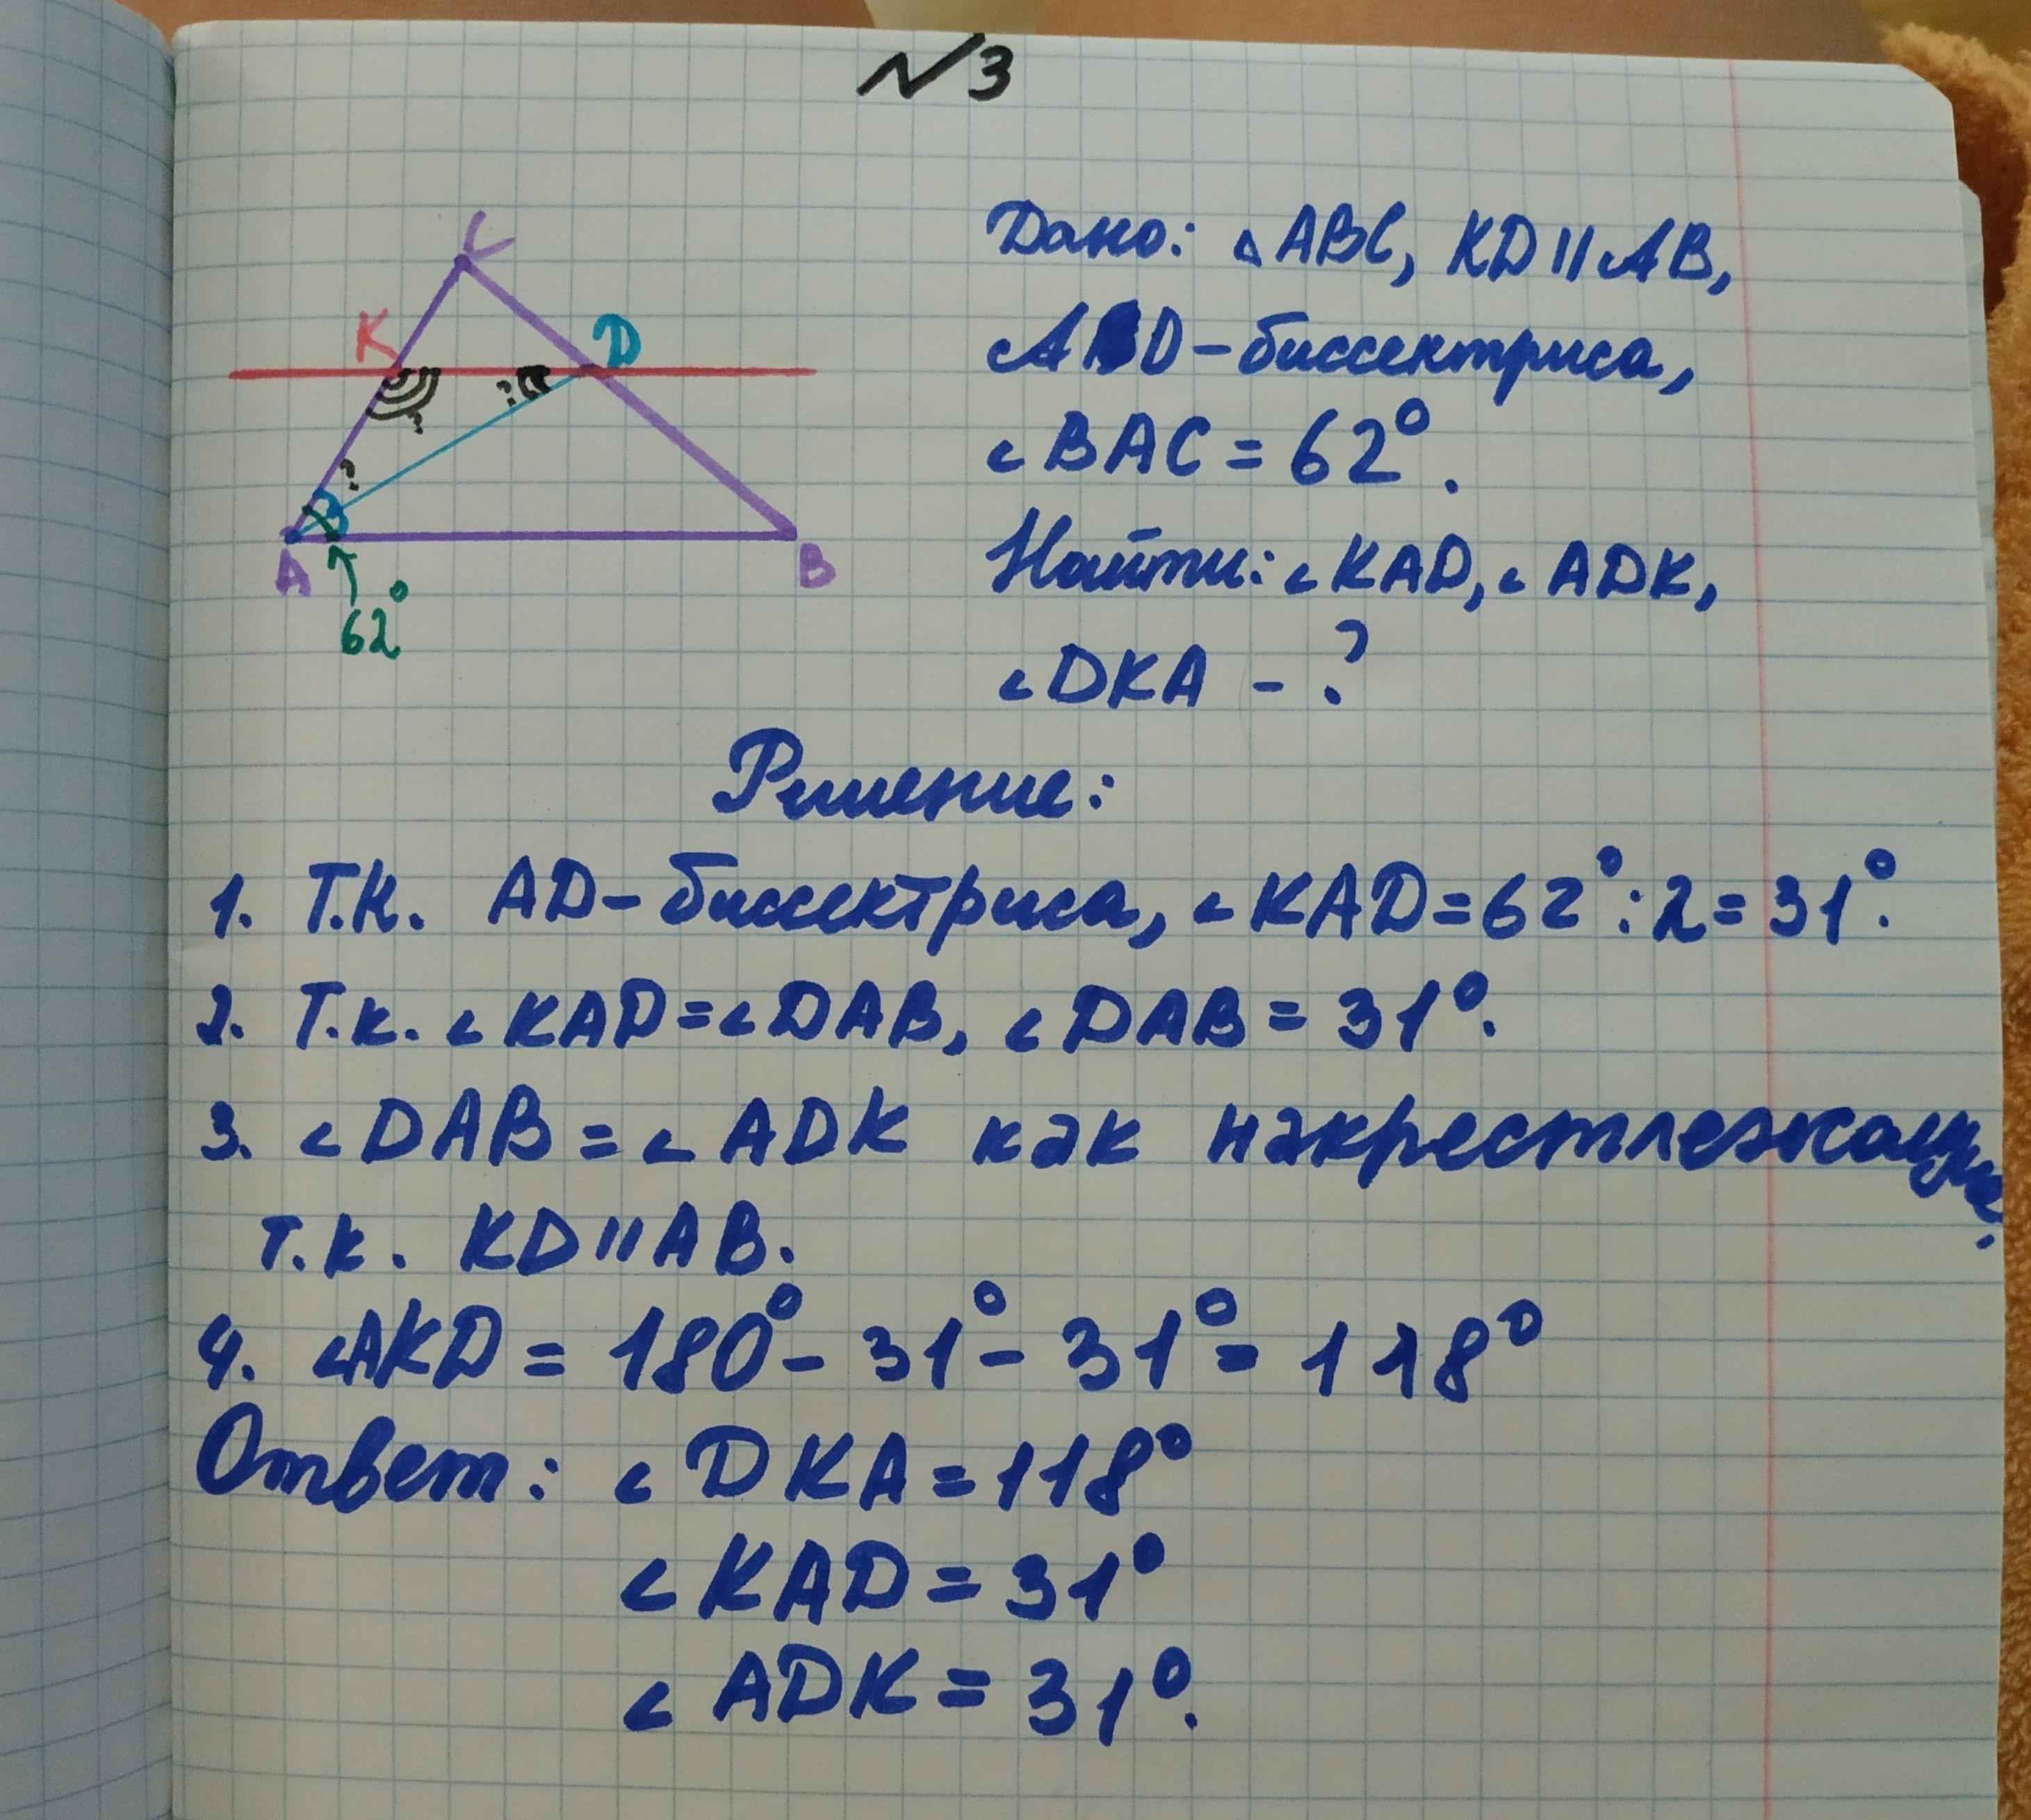 №3
C
K
D
?
?
?
A
B
62°
Дано: △ABC, KD||AB,
AD-биссектриса,
∠BAC=62°.
Найти: ∠KAD, ∠ADK,
∠DKA -?
Решение:
1. Т.к. AD-биссектриса, ∠KAD=62°:2=31°.
2. Т.к. ∠KAD=∠DAB, ∠DAB=31°.
3. ∠DAB=∠ADK как накрестлежащие,
т.к. KD||AB.
4. ∠AKD=180°-31°-31°=118°
Ответ: ∠DKA=118°
∠KAD=31°
∠ADK=31°.